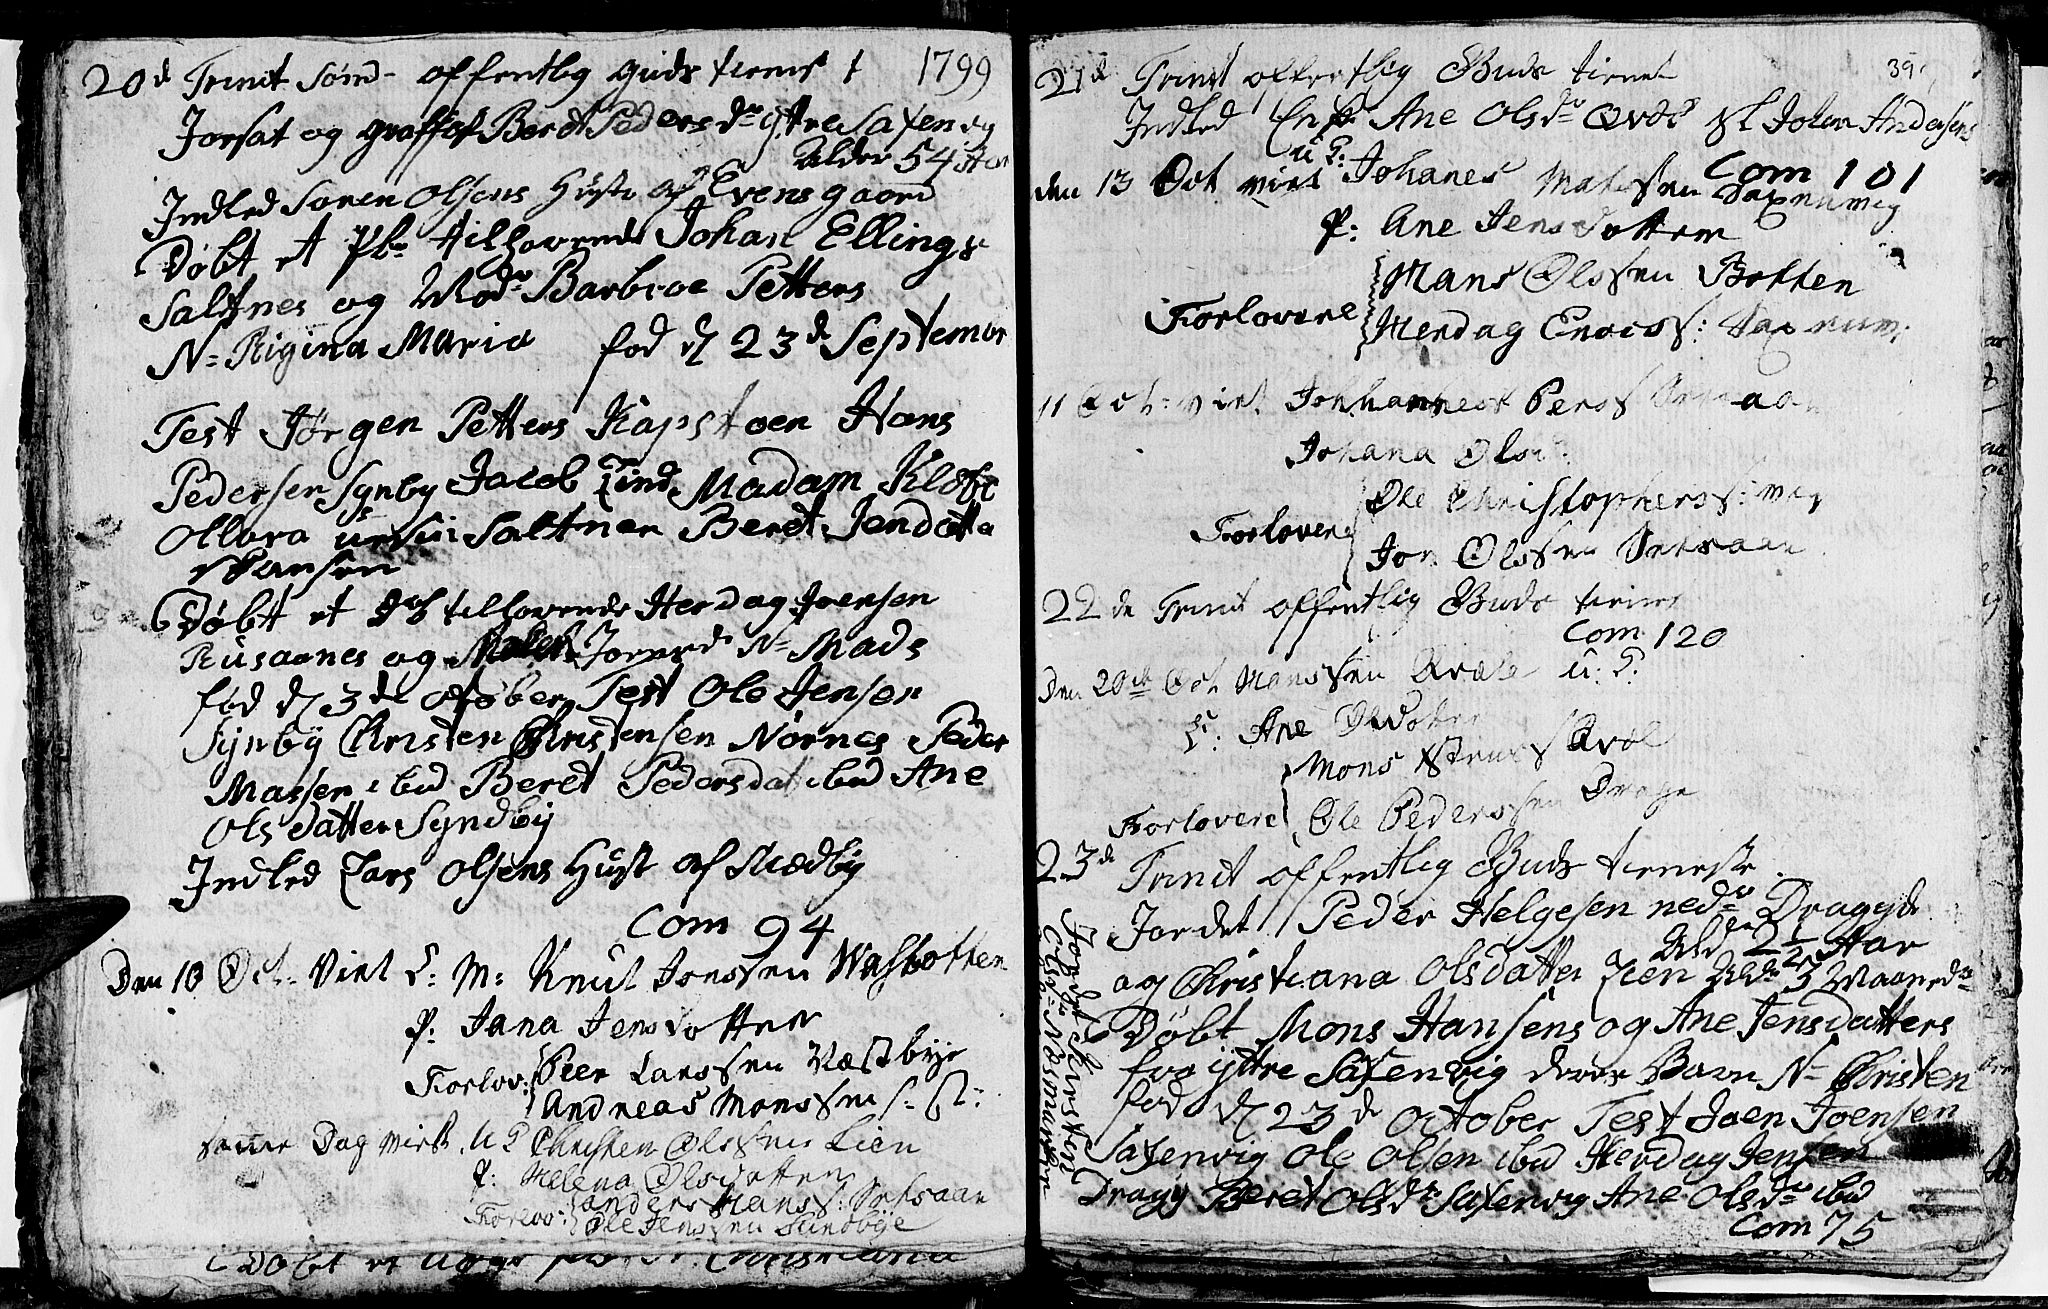 20d Trinit Sønd- offentlig guds tienest 1799
Jorsat og graffæst Beret Pedersdr ÿttre Saxenvig
Alder 54 Aar
Indled Søren Olsens Hustr af Evensgaard
Døbt et Pb: tilhørende Johan Ellings
Saltnes og Modr Barbroe Petters
N: Rigina Maria fød d 23d Septembr
Test Jørgen Petters Kapstoen Hans
Pedersen Synby Jacob Lind Madam Kløbe
Ollava Saltner Beret Jensdatter
Hansen
Døbt et tilhørende Herdag Joensen
Rusaanes og N: Mads
fød d 3de october Test Ole Jensen
Synbÿ Christen Christensen Nørnes Peder
Matsen ibid Beret Pedersdat ibid Ane
Olsdatter Syndbÿ
Indled Lars Olsens Hust af Sundbÿ
Com 94
Den 10 Oct. Viet E: M: Knut Jonssen Wasbotten
P: Jana Jensdotter
Forlov: Peer Larssen Væstbye
Andreas Monssen
samme Dag viet. U P Christen Olssen Lien
P: Helena Olsdotter
Forlov: anders Hanss: Setsaae
Ole Jenssen Sundbÿe
Døbt et Christiana
39
21de Trinit offentlig Guds tienest
Indled Enke Ane Olsdr Johan Andersens
Com 101
den 13 Oct viet U P: Johanes Matissen Saxenvig
P: Ane Jensdotter
Forlovere Mans Olssen Botten
Herdag Enocss: Saxenvi:
11 Oct: viet. Johannes Perss Setsaae
Johana Olsd:
Forlovere Ole Christopherss:
Jon Olssen Setsaae
22de Trinit offentlig Guds tienest
Com 120
Den 20de Oct Monssen Qvæle U: P:
P: Ane Olsdotter
Mons Qvæl
Forlovere Ole Pederssen Drage
23d Trinit offentlig Guds tieneste
Jordet Peder Helgesen nedr Dragÿd
Aldr 2 1/2 Aar
og Christiana Olsdatter Lien Aldr 3 Maanedr
Døbt Mons Hansens og Ane Jensdatters
fra ÿttre Saxenvig deres Barn N: Christen
fød d 23d october Test Joen Joensen
Saxenvig Ole Olsen ibid Herdag Jensen
Dragÿ Beret Olsdr Saxenvig Ane Olsdr ibid
Com 75